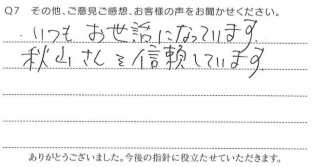 Q7 その他、ご意見ご感想、お客様の声をお聞かせください。
・いつも お世話になっています。
秋山さんを信頼しています。
ありがとうございました。今後の指針に役立たせていただきます。